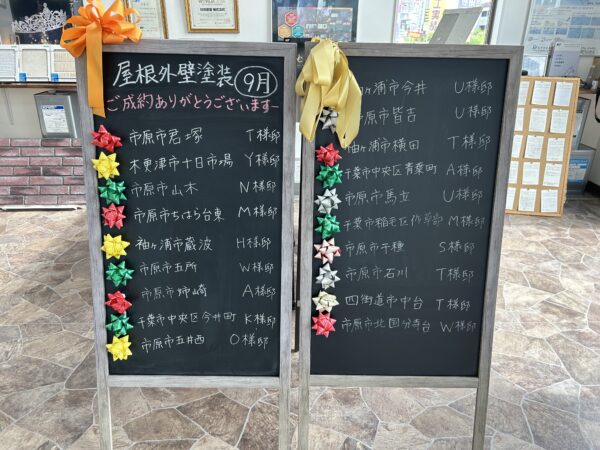 屋根外壁塗装 9月
ご成約ありがとうございます
市原市君塚 T様邸
木更津市十日市場 Y様邸
市原市山木 N様邸
市原市ちはら台東 M様邸
袖ヶ浦市蔵波 H様邸
市原市五所 W様邸
市原市姉崎 A様邸
千葉市中央区今井町 K様邸
市原市五井西 O様邸
袖ヶ浦市今井 U様邸
市原市皆吉 U様邸
袖ヶ浦市横田 T様邸
千葉市中央区青葉町 A様邸
市原市馬立 U様邸
千葉市稲毛区作草部 M様邸
市原市千種 S様邸
市原市石川 T様邸
四街道市中台 T様邸
市原市北国分寺台 W様邸